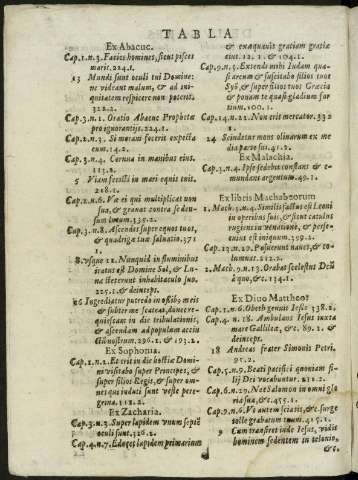 TABLA
Ex Abacuc.
Cap.1.n.3. Facies homines, sicut pisces
maris. 224.1.
13 Mundi sunt oculi tui Domine:
ne videant malum, & ad ini-
quitatem respicere non poterit.
322.2.
Cap.3.n.1. Oratio Abacuc Prophetæ
pro ignorantijs. 224.1.
Cap.2.n.3. Si moram fecerit expecta
eum. 14.2.
Cap.3.n.4. Cornua in manibus eius.
113.2.
5 Viam fecisti in mari equis tuis.
218.1.
Cap.2.n.6. Væ ei qui multiplicat non
sua, & granat contra se den-
sum lutum. 335.2.
Cap.3.n.8. Ascendes super equos tuos,
& quadrigæ tuæ saluatio. 371
8. usque 12. Nunquid in fluminibus
iratus est Domine Sol, & Lu-
na steterunt in habitaculo suo.
225.1. & deincept.
16 Ingrediatur putredo in ossibus meis
& subter me scateat, donec re-
quiescam in die tribulationis,
& ascendam ad populum accin
ctū nostrum. 296.1. & 193.2.
Ex Sophonia.
Cap.1.n.2. Et erit in die hostiæ Domi-
ni visitabo super Principes, &
super filios Regis, & super om-
nes qui induti sunt veste pere-
grina. 112.2.
Ex Zacharia.
Cap.3.n.3. Super lapidem unum septē
oculi sunt. 326.2.
Cap.4.n.7. Educes lapidem primarium
& exæquauit gratiam gratiæ
eius. 12.1. & 104.1.
Cap.9.n.3. Extendi mihi Iudam qua-
si arcum & suscitabo filios tuos
Syō, & super filios tuos Græcia
& ponam te quasi gladium for
tium. 100.1.
Cap.14.n.21. Non erit mercator. 332
1.
24 Scindetur mons oliuarum ex me
dia parte sui. 41.2.
Ex Malachia.
Cap.3.n.4. Ipse sedebit constans & e-
mundans argentum. 49.1.
Ex libris Machabeorum
1. Mach.3.n.4. Similis factus est Leoni
in operibus suis, & sicut catulus
rugiens in venatione, & perse-
cutus est iniquum. 359.2.
Cap.13.n.29. Posuerunt naues, & co-
lumnas. 212.2.
2. Mach.9.n.13. Orabat scelestus Deū
à quo, &c. 134.1.
Ex Diuo Mattheo
Cap.1.n.6. Obed genuit Iesse. 138.2.
Cap.4.n.18. Ambulans Iesus iuxta
mare Galileæ, & c. 89.1. &
deincept.
18 Andreas frater Simonis Petri.
95.2.
Cap.5.n.9. Beati pacifici quoniam fi-
lij Dei vocabuntur. 212.2.
Cap.6.n.29. Nec Salomon in omni glo
ria sua, & c. 455.1.
Cap.9.n.6. Vt autem sciatis, & c. surge
tolle grabatum tuum. 415.1.
9 Cum transiret inde Iesus, vidit
hominem sedentem in telonio,
&c.